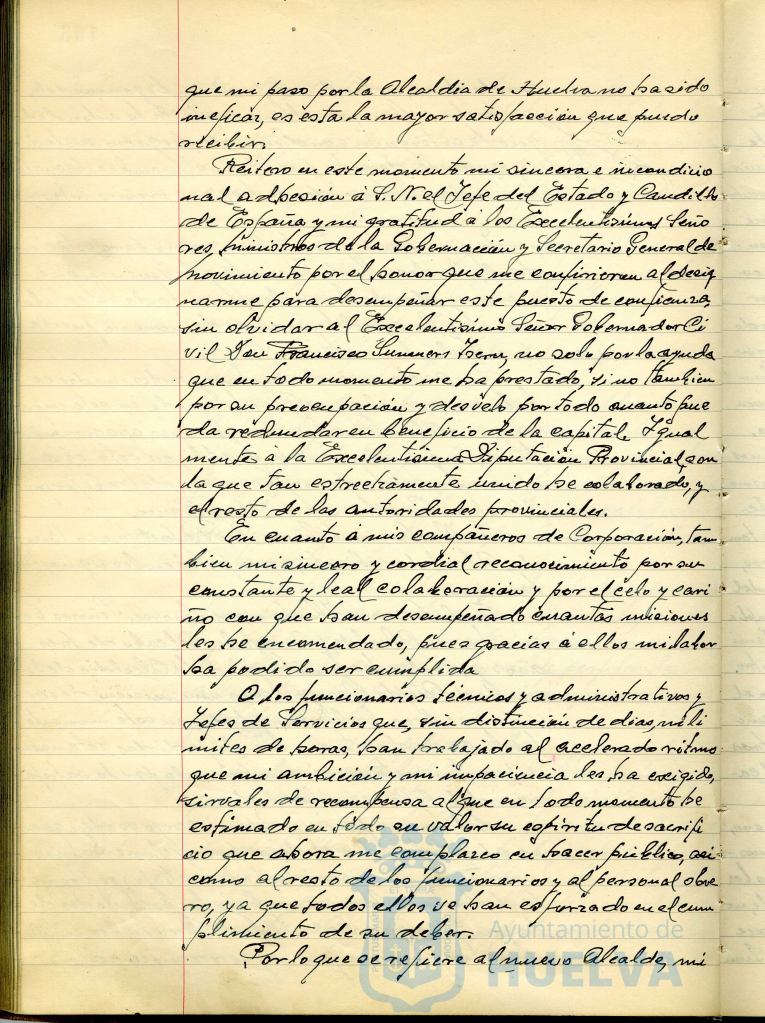 que mi paso por la Alcaldia de Huelva no ha sido
ineficaz, es esta la mayor satisfacción que puedo
recibir.
Reitero en este momento mi sincera e incondicio
nal adhesión á S. N. el Jefe del Estado y Caudillo
de España y mi gratitud á los Excelentisimos Seño
res, ministros de la Gobernación y Secretario General de
movimiento por el honor que me confirieron al desig
narme para desempeñar este puesto de confianza,
sin olvidar al Excelentisimo Señor Gobernador Ci
vil Don Francisco Summers Isern, no solo por la ayuda
que en todo momento me ha prestado, si no tambien
por su preocupación y desvelo por todo cuanto pue
da redundar en beneficio de la capital. Igual
mente á la Excelentisima Diputación Provincial, con
la que tan estrechamente unido he colaborado, y
el resto de las autoridades provinciales.
En cuanto á mis compañeros de Corporación, tam
bien mi sincero y cordial reconocimiento por su
constante y leal colaboración y por el celo y cari
ño con que han desempeñado cuantas misiones
les he encomendado, pues gracias á ellos mi labor
ha podido ser cumplida
A los funcionarios técnicos y administrativos y
Jefes de Servicios que, sin distinción de dias, ni li
mites de horas, han trabajado al acelerado ritmo
que mi ambición y mi impaciencia les ha exigido,
sirvales de recompensa al que en todo momento he
estimado en todo su valor su espiritu de sacrifi
cio que ahora me complazco en hacer público, asi
como al resto de los funcionarios y al personal obre
ro, ya que todos ellos se han esforzado en el cum
plimiento de su deber.
Por lo que se refiere al nuevo Alcalde, mi
Ayuntamiento de
HUELVA